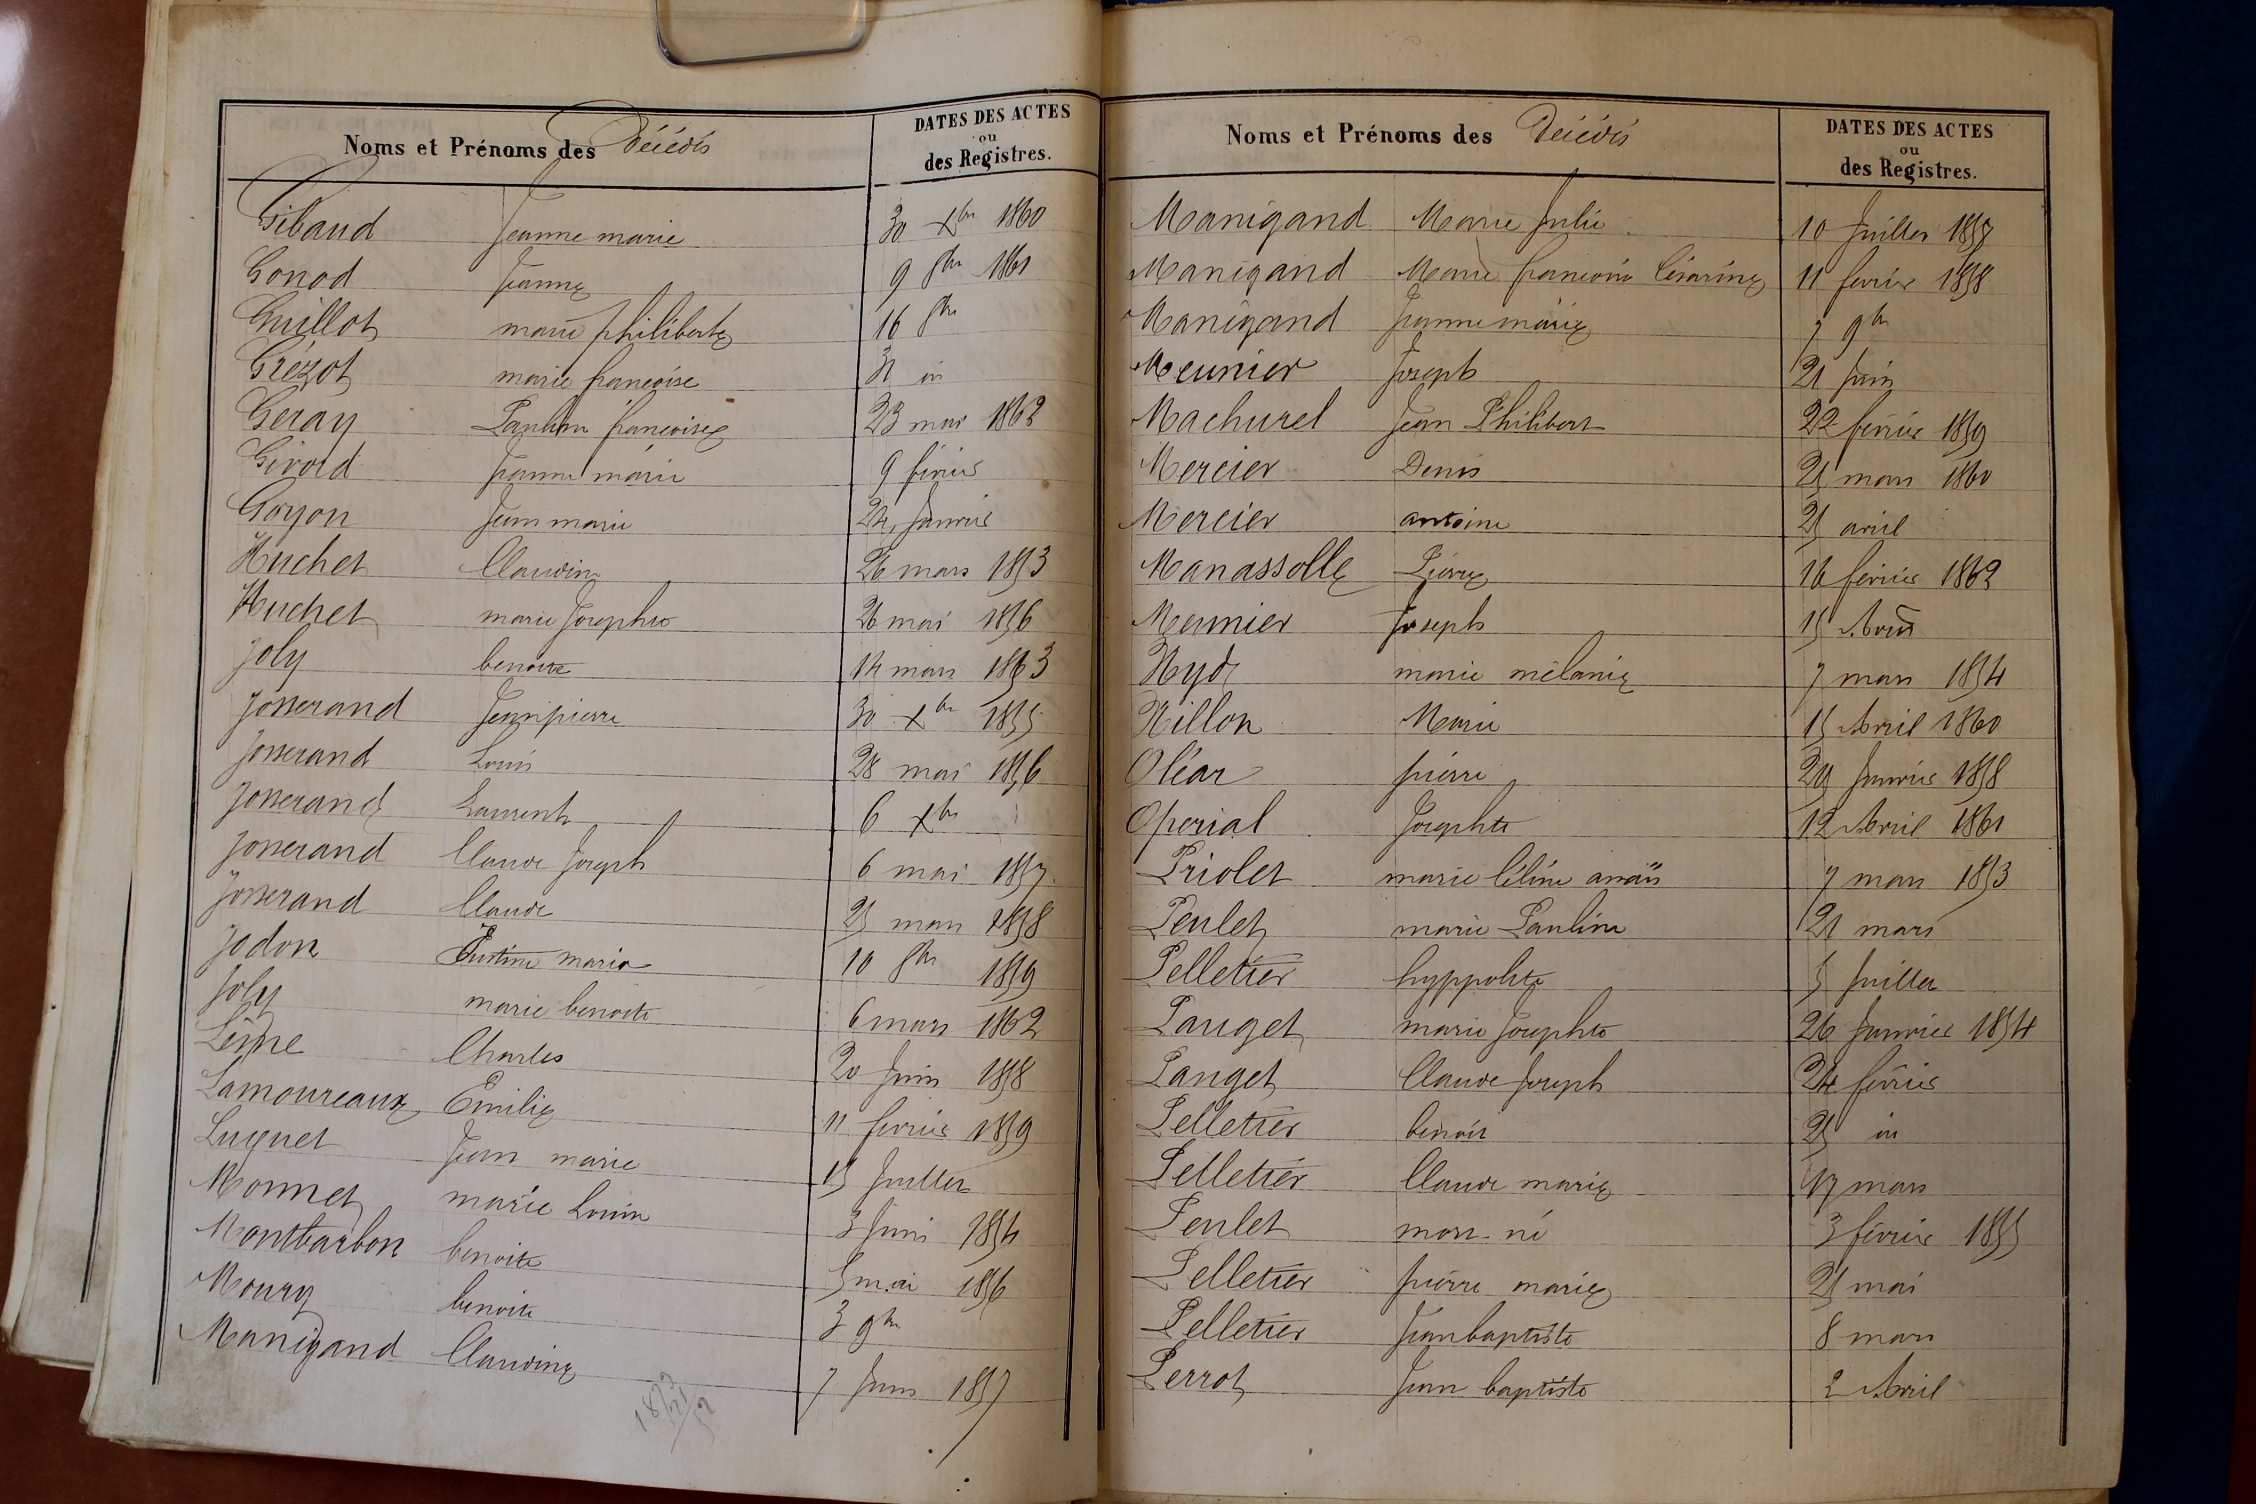 Noms et Prénoms des Décédés
DATES DES ACTES
ou
des Registres.
Gibaud Jeanne marie 30 Xbre 1860
Gonod Jeanne 9 8bre 1861
Guillot marie philiberte 16 8bre
Grézot marie françoise 31 id
Geray Pauline françoise 23 mai 1862
Girord Jeanne marie 9 février
Goyon Jean marie 24 Janvier
Huchet Claudine 26 mars 1853
Huchet marie Josephte 26 mai 1856
Joly benoite 14 mars 1853
Josserand Jean pierre 30 Xbre 1855
Josserand Louis 28 mai 1856
Josserand Laurent 6 Xbre
Josserand Claude Joseph 6 mai 1857
Josserand Claude 25 mars 1858
Jodon Justine maria 10 8bre 1859
Joly marie benoite 6 mars 1862
Charles 20 Juin 1858
Lamoureaux Emilie 11 février 1859
Luguet Jean marie 15 Juillet
Monnet marie Louise 3 Juin 1854
Montbarbon benoite 5 mai 1856
Moury benoite 3 9bre
Manigand Claudine 7 Juin 1857
Noms et Prénoms des Décédés
DATES DES ACTES
ou
des Registres.
Manigand Marie Julie 10 Juillet 1857
Manigand Marie françoise Césarine 11 février 1858
Manigand Jeanne marie 7 9bre
Meunier Joseph 21 Juin
Machurel Jean Philibert 22 février 1859
Mercier Denis 25 mars 1860
Mercier antoine 25 avril
Manassolle Pierre 16 février 1862
Meunier Joseph 15 Aout
Nyd marie mélanie 7 mars 1854
Nillon Marie 15 Avril 1860
Oléar pierre 29 Janvier 1858
Operial Josephte 12 Avril 1861
Priolet marie Céline anaïs 7 mars 1853
Penlet marie Pauline 21 mars
Pelletier hyppolite 5 Juillet
Pauget marie Josephte 26 Janvier 1854
Pauget Claude Joseph 24 février
Pelletier benoit 25 id
Pelletier Claude marie 17 mars
Penlet mort-né 3 février 1855
Pelletier pierre marie 25 mai
Pelletier Jean baptiste 8 mars
Perrot Jean baptiste 2 Avril